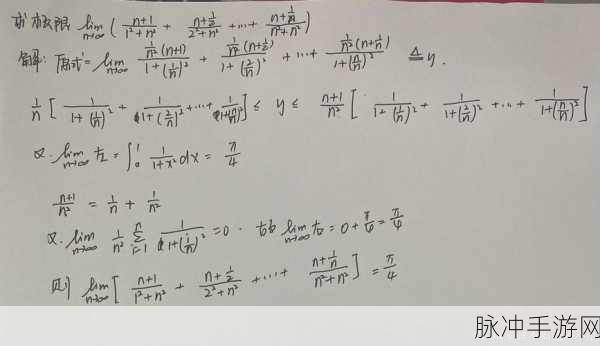 求极限 lim_{n→∞} ( \frac{n+1}{1²+n²} + \frac{n+\frac{1}{2}}{2²+n²} + … + \frac{n+\frac{1}{n}}{n²+n²} )
解: 原式 = lim_{n→∞} \frac{\frac{1}{n²}(n+1)}{1+(\frac{1}{n})²} + \frac{\frac{1}{n²}(n+\frac{1}{2})}{1+(\frac{2}{n})²} + … + \frac{\frac{1}{n²}(n+\frac{1}{n})}{1+(\frac{n}{n})²} ≜ y.
\frac{1}{n} [ \frac{1}{1+(\frac{1}{n})²} + \frac{1}{1+(\frac{2}{n})²} + … + \frac{1}{1+(\frac{n}{n})²} ] ≤ y ≤ \frac{n+1}{n²} [ \frac{1}{1+(\frac{1}{n})²} + \frac{1}{1+(\frac{2}{n})²} + … + \frac{1}{1+(\frac{n}{n})²} ]
又. lim_{n→∞} 左 = ∫_0^1 \frac{1}{1+x²} dx = \frac{π}{4}
\frac{n+1}{n²} = \frac{1}{n} + \frac{1}{n²}
又. lim_{n→∞} \frac{1}{n²} \sum_{i=1}^{n} \frac{1}{1+(\frac{i}{n})²} = 0. 故 lim_{n→∞} 右 = 0 + \frac{π}{4} = \frac{π}{4}
则 lim_{n→∞} [ \frac{n+1}{1²+n²} + \frac{n+\frac{1}{2}}{2²+n²} + … + \frac{n+\frac{1}{n}}{n²+n²} ] = \frac{π}{4}
脉冲手游网